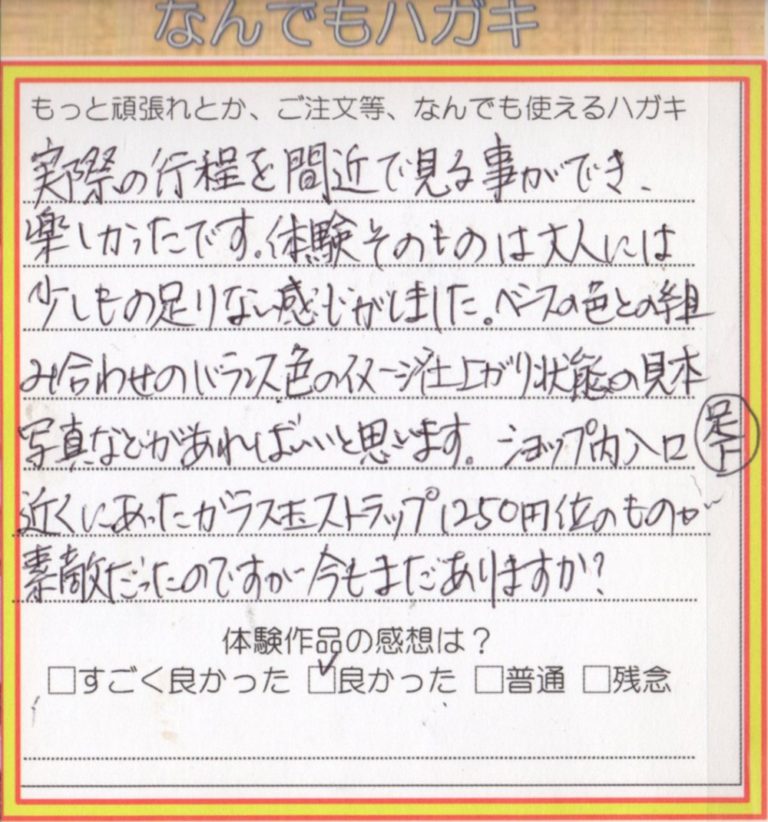 なんでもハガキ
もっと頑張れとか、ご注文等、なんでも使えるハガキ
実際の行程を間近で見る事ができ、
楽しかったです。体験そのものは大人には
少しもの足りない感じがしました。ベースの色との組
み合わせのバランス色のイメージ仕上がり状態の見本
写真などがあればいいと思います。ショップ内入口
足下
近くにあったガラス玉ストラップ1250円位のものが
素敵だったのですが今もまだありますか?
体験作品の感想は?
□すごく良かった ☑良かった □普通 □残念